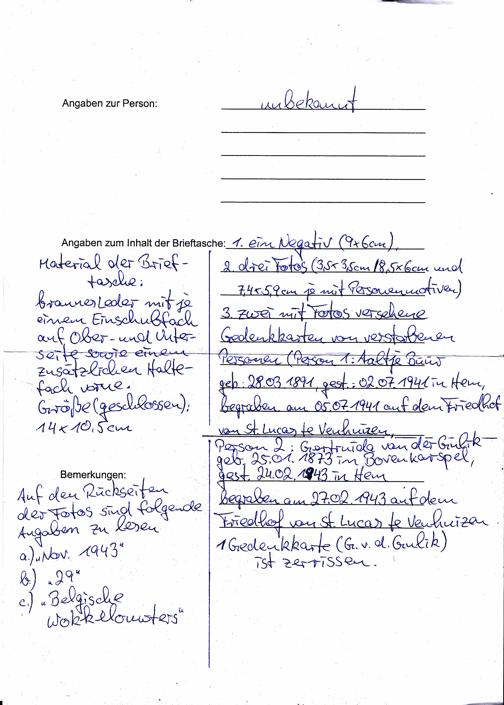 Angaben zur Person: unbekannt
Angaben zum Inhalt der Brieftasche: 1. ein Negativ (9x6cm),
2. drei Fotos (3,5x3,5cm/8,5x6cm und
7,4x5,9cm je mit Personenmotiven)
3. zwei mit Fotos versehene
Gedenkkarten von verstorbenen
Personen (Person 1: Aaltje
geb. 28.03.1891, gest. 02.07.1941 in Hem,
begraben am 05.07.1941 auf dem Friedhof
von St. Lucas te Venhuizen,
Person 2: Geertruida van der Gulik
geb. 25.01.1873 in Bovenkarspel,
gest. 24.02.1943 in Hem
begraben am 27.02.1943 auf dem
Friedhof von St. Lucas te Venhuizen.
1 Gedenkkarte (G. v. d. Gulik)
ist zerrissen.
Material der Brief-
tasche:
braunes Leder mit je
einem Einschubfach
auf Ober- und Unter-
seite sowie einem
zusätzlichen Halte-
fach vorne.
Größe (geschlossen):
14x10,5cm
Bemerkungen:
Auf den Rückseiten
der Fotos sind folgende
Angaben zu lesen
a.) "Nov. 1943"
b.) "29"
c.) "Belgische